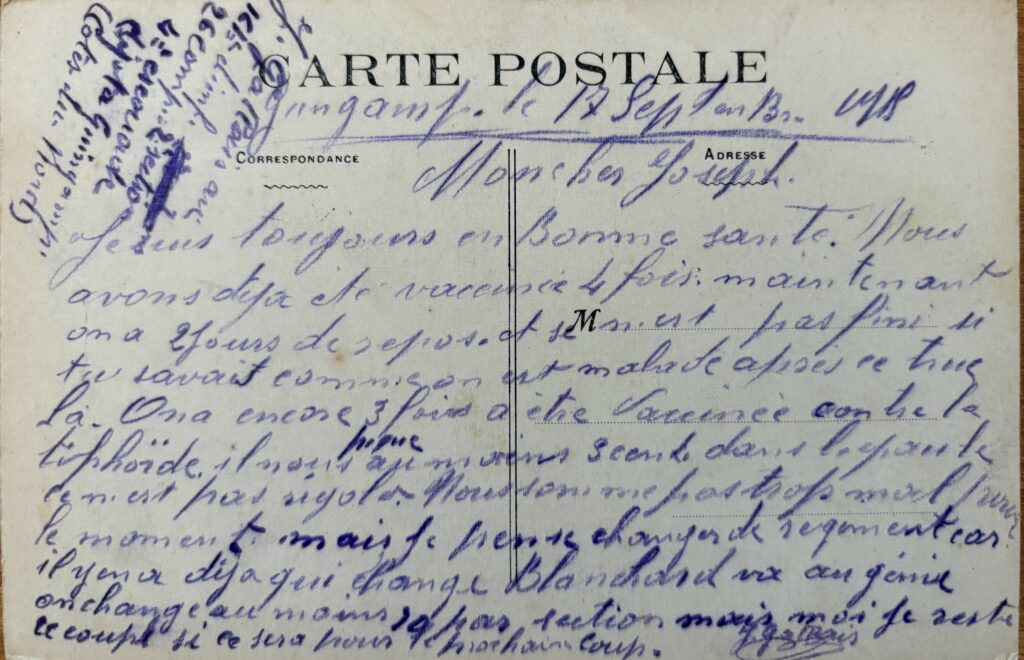 CARTE POSTALE
Guingamp. le 17 Sept en Br. 1915
CORRESPONDANCE
ADRESSE
Mon cher Joseph.
Je suis toujours en Bonne santé. Nous
avons deja été vaccinée 4 fois. maintenant
on a 2 Jours de repos. et se n'est pas fini si
M
tu savait comme on est malade apres ce truc
là. On a encore 3 fois a être Vaccinée contre la
tiphoïde. il nous pique au moins 3 cent dans l'epaule
ce n'est pas rigolo. Nous somme pas trop mal pour
le moment. mais je pense changer de regiment car.
il y en a déja qui change Blanchard va au génie
on change au moins 10 par section mais moi je reste
ce coup si ce sera pour le prochain coup.
au
d'inf.
26 comp.
2 section
4e escouade
Guingamp
Cotes du Nord